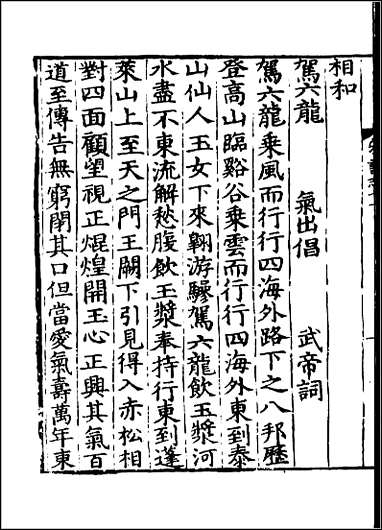 相和
駕六龍　氣出倡　武帝詞
駕六龍乘風而行行四海外路下之八邦歷
登高山臨谿谷乘雲而行行四海外東到泰
山仙人玉女下來翱游驂駕六龍飲玉漿河
水盡不東流解愁腹飲玉漿奉持行東到蓬
萊山上至天之門王闕下引見得入赤松相
對四面顧望視正焜煌開玉心正興其氣百
道至傳告無窮閉其口但當愛氣壽萬年東